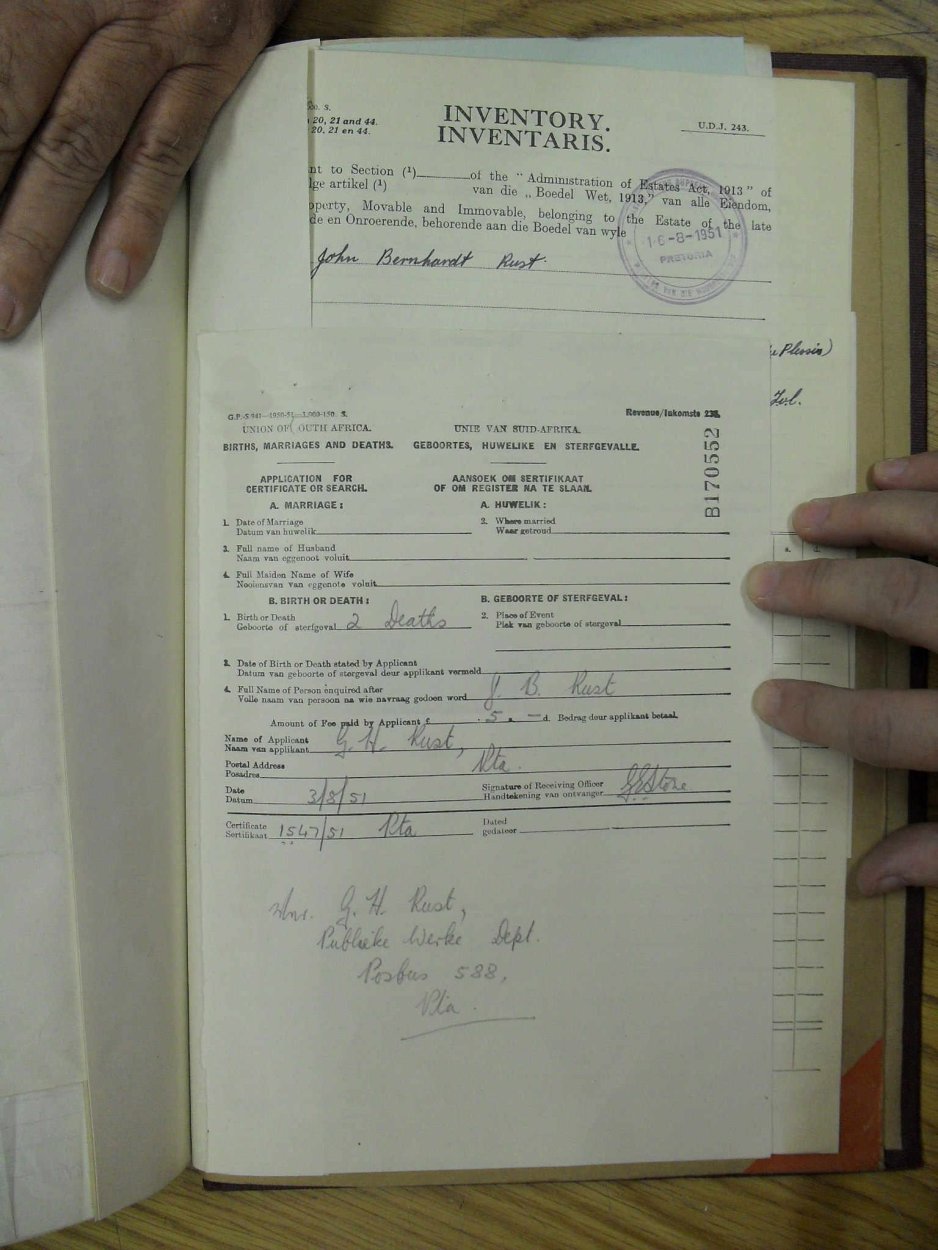 20, 21 and 44.
20, 21 en 44.
INVENTORY.
INVENTARIS.
U.D.J. 243.
nt to Section (¹) of the "Administration of Estates Act, 1913" of
lge artikel (¹) van die „Boedel Wet, 1913," van alle Eiendom,
operty, Movable and Immovable, belonging to the Estate of the late
de en Onroerende, behorende aan die Boedel van wyle
16-8-1951
PRETORIA
John Bernhardt Rust
Plessis)
Tvl.
s. d.
G.P.-S. Revenue/Inkomste 238.
UNION OF OUTH AFRICA. UNIE VAN SUID-AFRIKA.
BIRTHS, MARRIAGES AND DEATHS. GEBOORTES, HUWELIKE EN STERFGEVALLE.
B170552
APPLICATION FOR AANSOEK OM SERTIFIKAAT
CERTIFICATE OR SEARCH. OF OM REGISTER NA TE SLAAN.
A. MARRIAGE: A. HUWELIK:
1. Date of Marriage 2. Where married
Datum van huwelik Waar getroud
3. Full name of Husband
Naam van eggenoot voluit
4. Full Maiden Name of Wife
Nooiensvan van eggenote voluit
B. BIRTH OR DEATH: B. GEBOORTE OF STERFGEVAL:
1. Birth or Death 2. Place of Event
Geboorte of sterfgeval 2 Deaths Plek van geboorte of stergeval
3. Date of Birth or Death stated by Applicant
Datum van geboorte of stergeval deur applikant vermeld
4. Full Name of Person enquired after
Volle naam van persoon na wie navraag gedoen word J. B. Rust
Amount of Fee paid by Applicant £ 5. —d. Bedrag deur applikant betaal.
Name of Applicant
Naam van applikant G. H. Rust,
Postal Address
Posadres Pta.
Date Signature of Receiving Officer
Datum 3/8/51 Handtekening van ontvanger GEStone
Certificate Dated
Sertifikaat 1547/51 Pta gedateer
Mnr. G. H. Rust,
Publieke Werke Dept.
Posbus 588,
Pta.